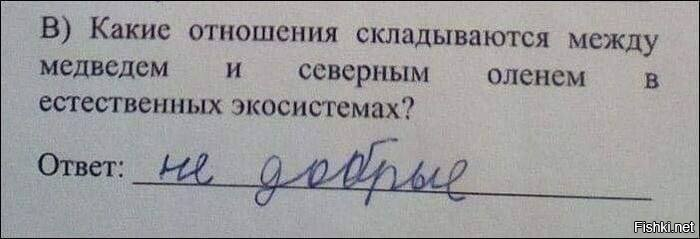 В) Какие отношения складываются между
медведем и северным оленем в
естественных экосистемах?
Ответ: не добрые
Fishki.net